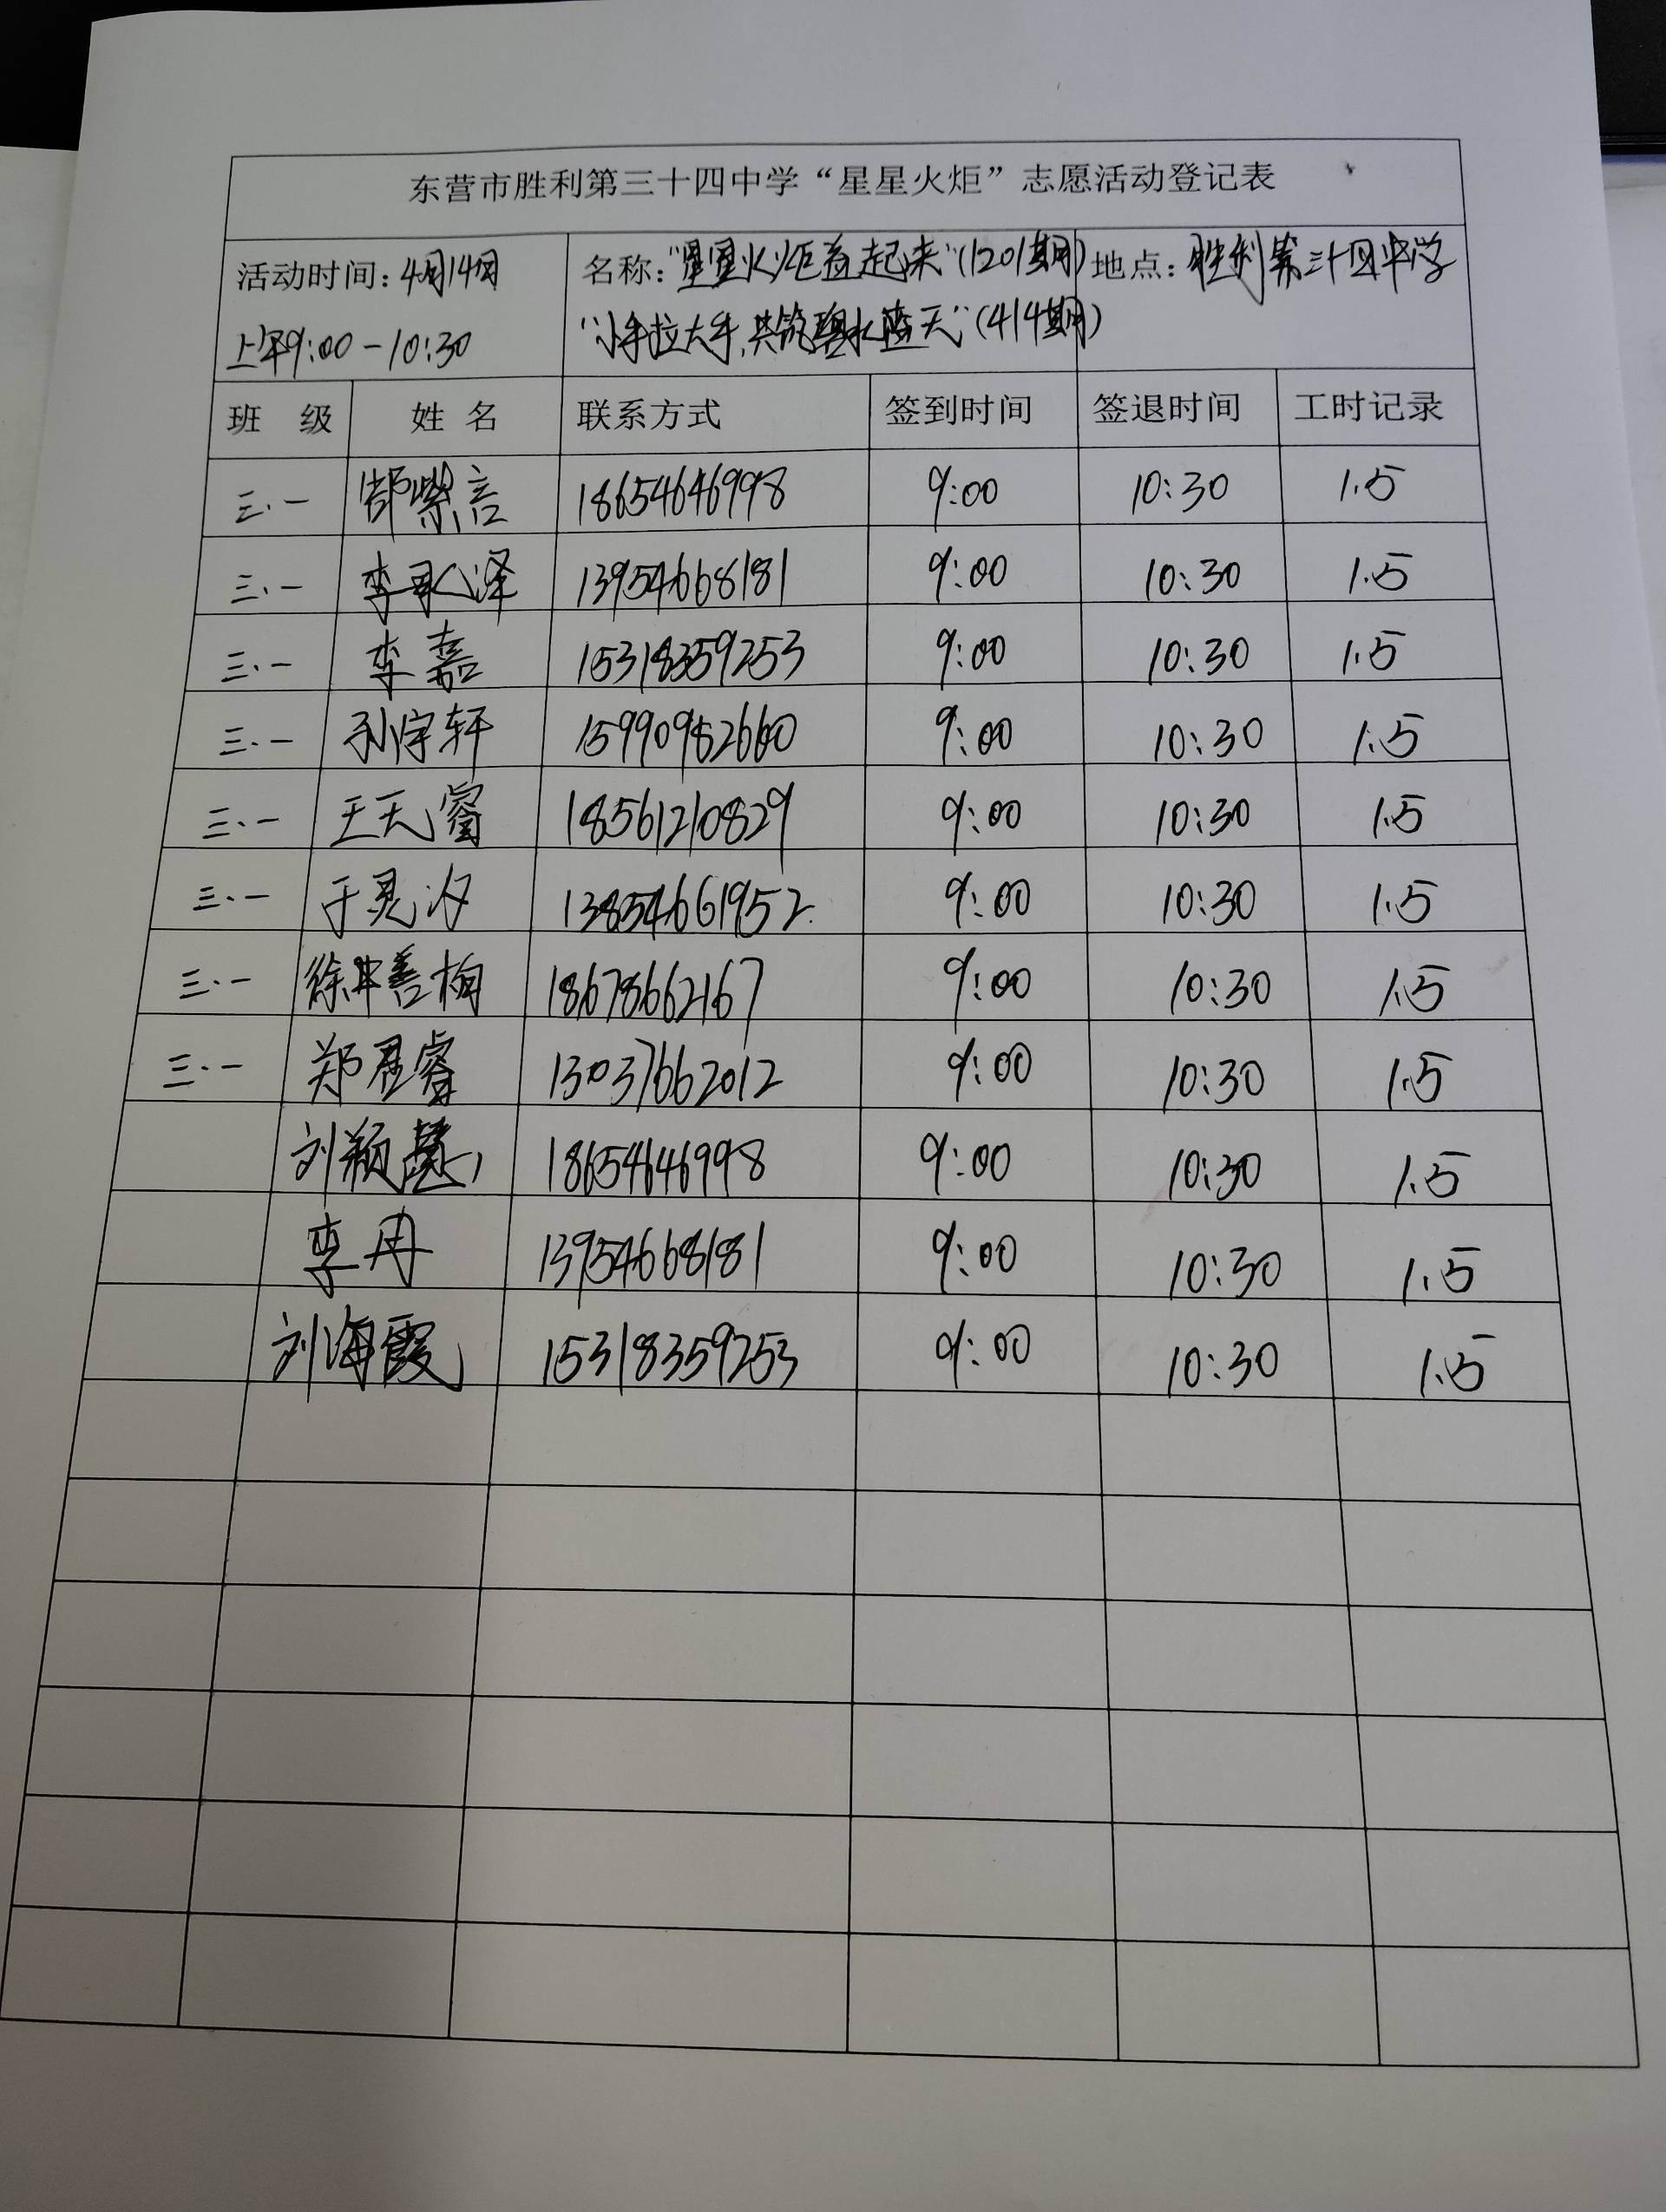 东营市胜利第三十四中学“星星火炬”志愿活动登记表
活动时间：4月14日 名称：“星星火炬益起来”（1201期） 地点：胜利第三十四中学
上午9:00-10:30 “小手拉大手，共筑碧水蓝天”（414期）
班 级 姓 名 联系方式 签到时间 签退时间 工时记录
三.一 郜紫言 18654646998 9:00 10:30 1.5
三.一 李承泽 13954668181 9:00 10:30 1.5
三.一 李嘉 15318359253 9:00 10:30 1.5
三.一 孙宇轩 15990982660 9:00 10:30 1.5
三.一 王天睿 18561210829 9:00 10:30 1.5
三.一 于灵汐 13854661952 9:00 10:30 1.5
三.一 徐善梅 18678662167 9:00 10:30 1.5
三.一 郑星睿 13037662012 9:00 10:30 1.5
刘颖慧 18654646998 9:00 10:30 1.5
李冉 13954668181 9:00 10:30 1.5
刘海霞 15318359253 9:00 10:30 1.5